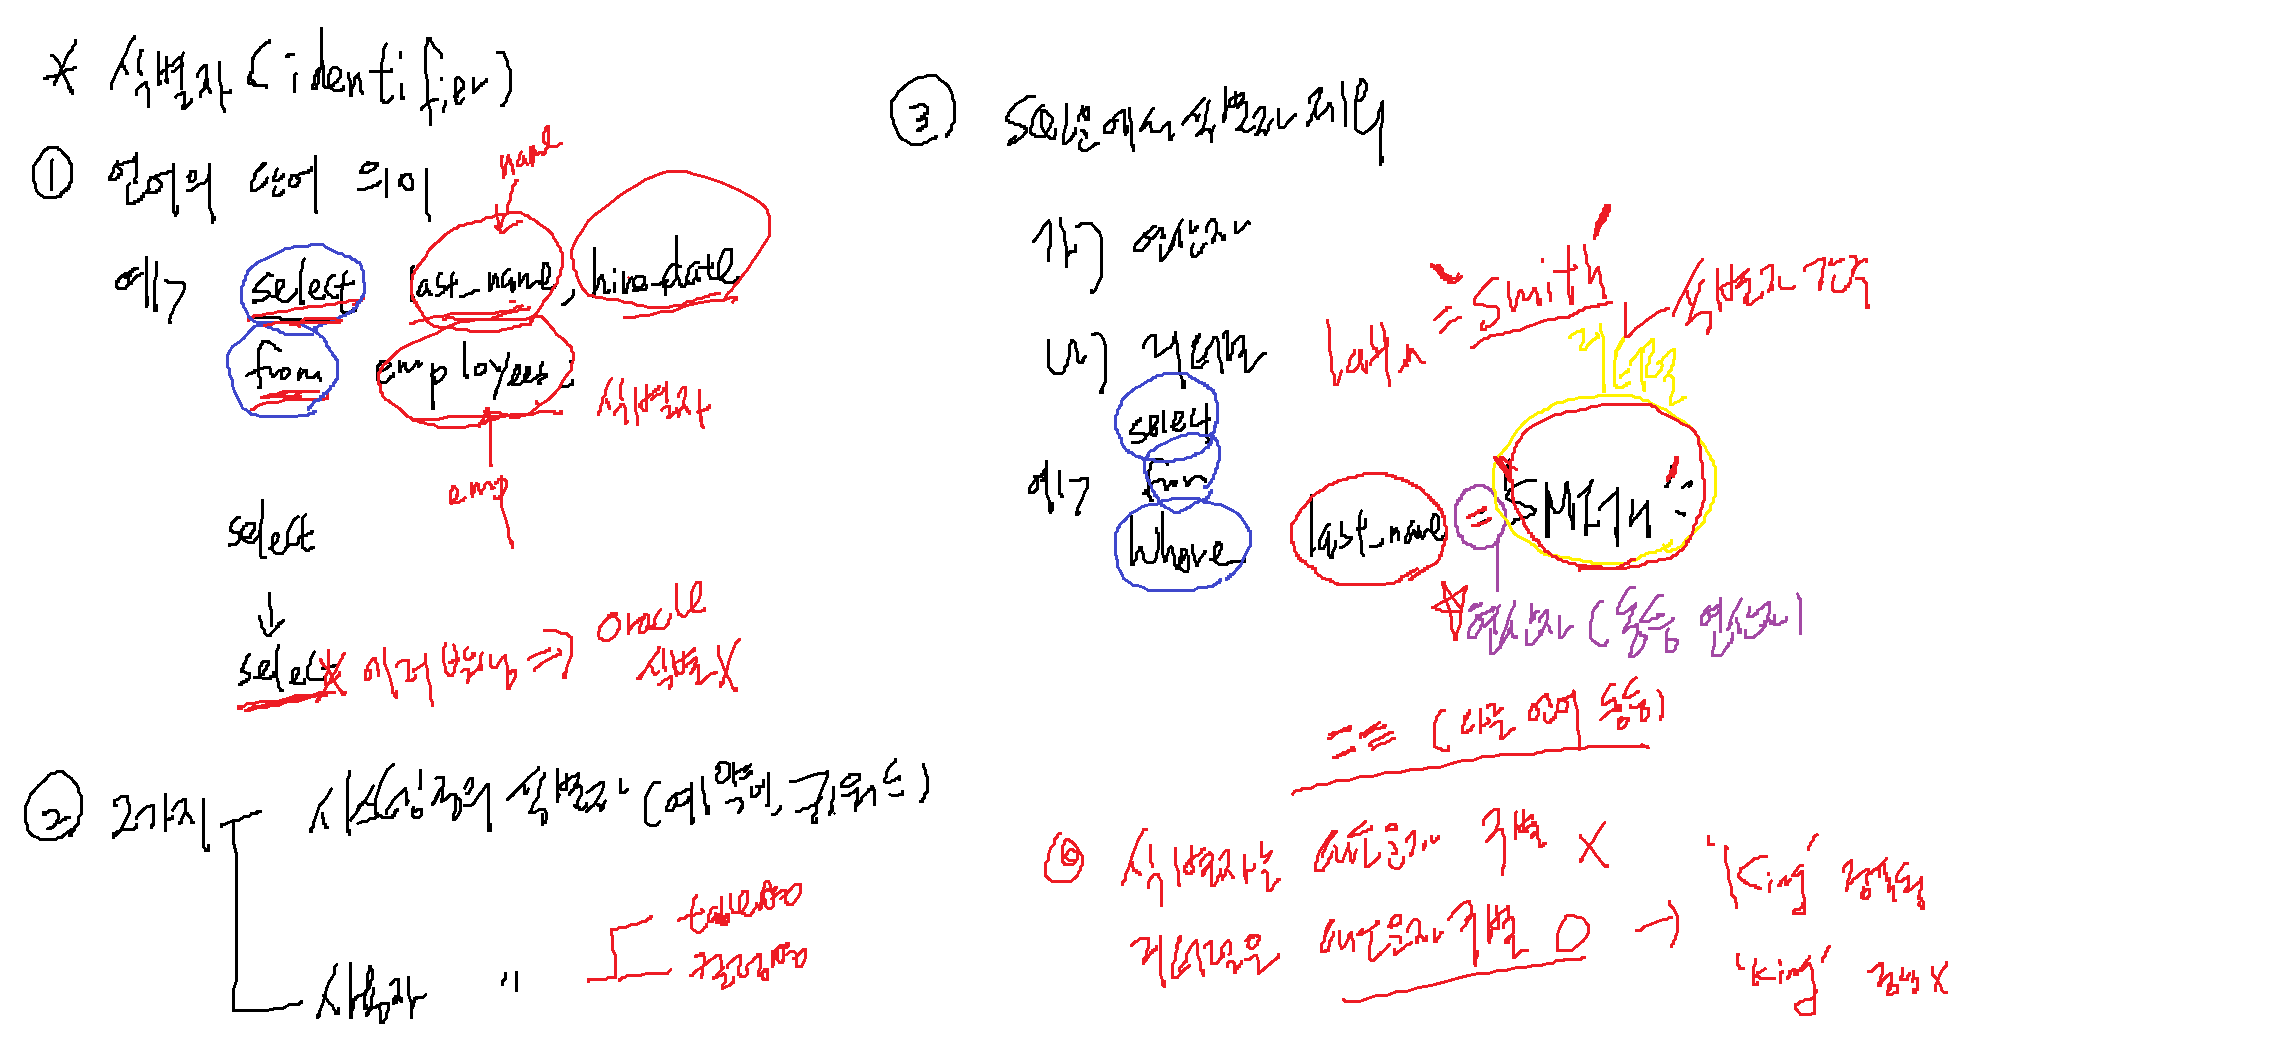 * 식별자 (identifier)
① 언어의 단어 의미
name
예> select last_name, hire_date
from employees;
식별자
emp
select
↓
select* 이거 변경 => oracle
식별 X
② 2가지
시스템정의 식별자 (예약어, 키워드)
사용자 "
table명
컬럼명
③ SQL문에서 식별자 제외
가> 연산자
나> 리터럴
last_n = Smith
식별자 간주
리터럴
예> select
from
where last_name = 'SMITH';
☆ 연산자 (동등 연산자)
== (다른 언어 동등)
식별자는 대소문자 구별 X
리터럴은 대소문자 구별 O → 'King' 검색됨
'king' 검색 X